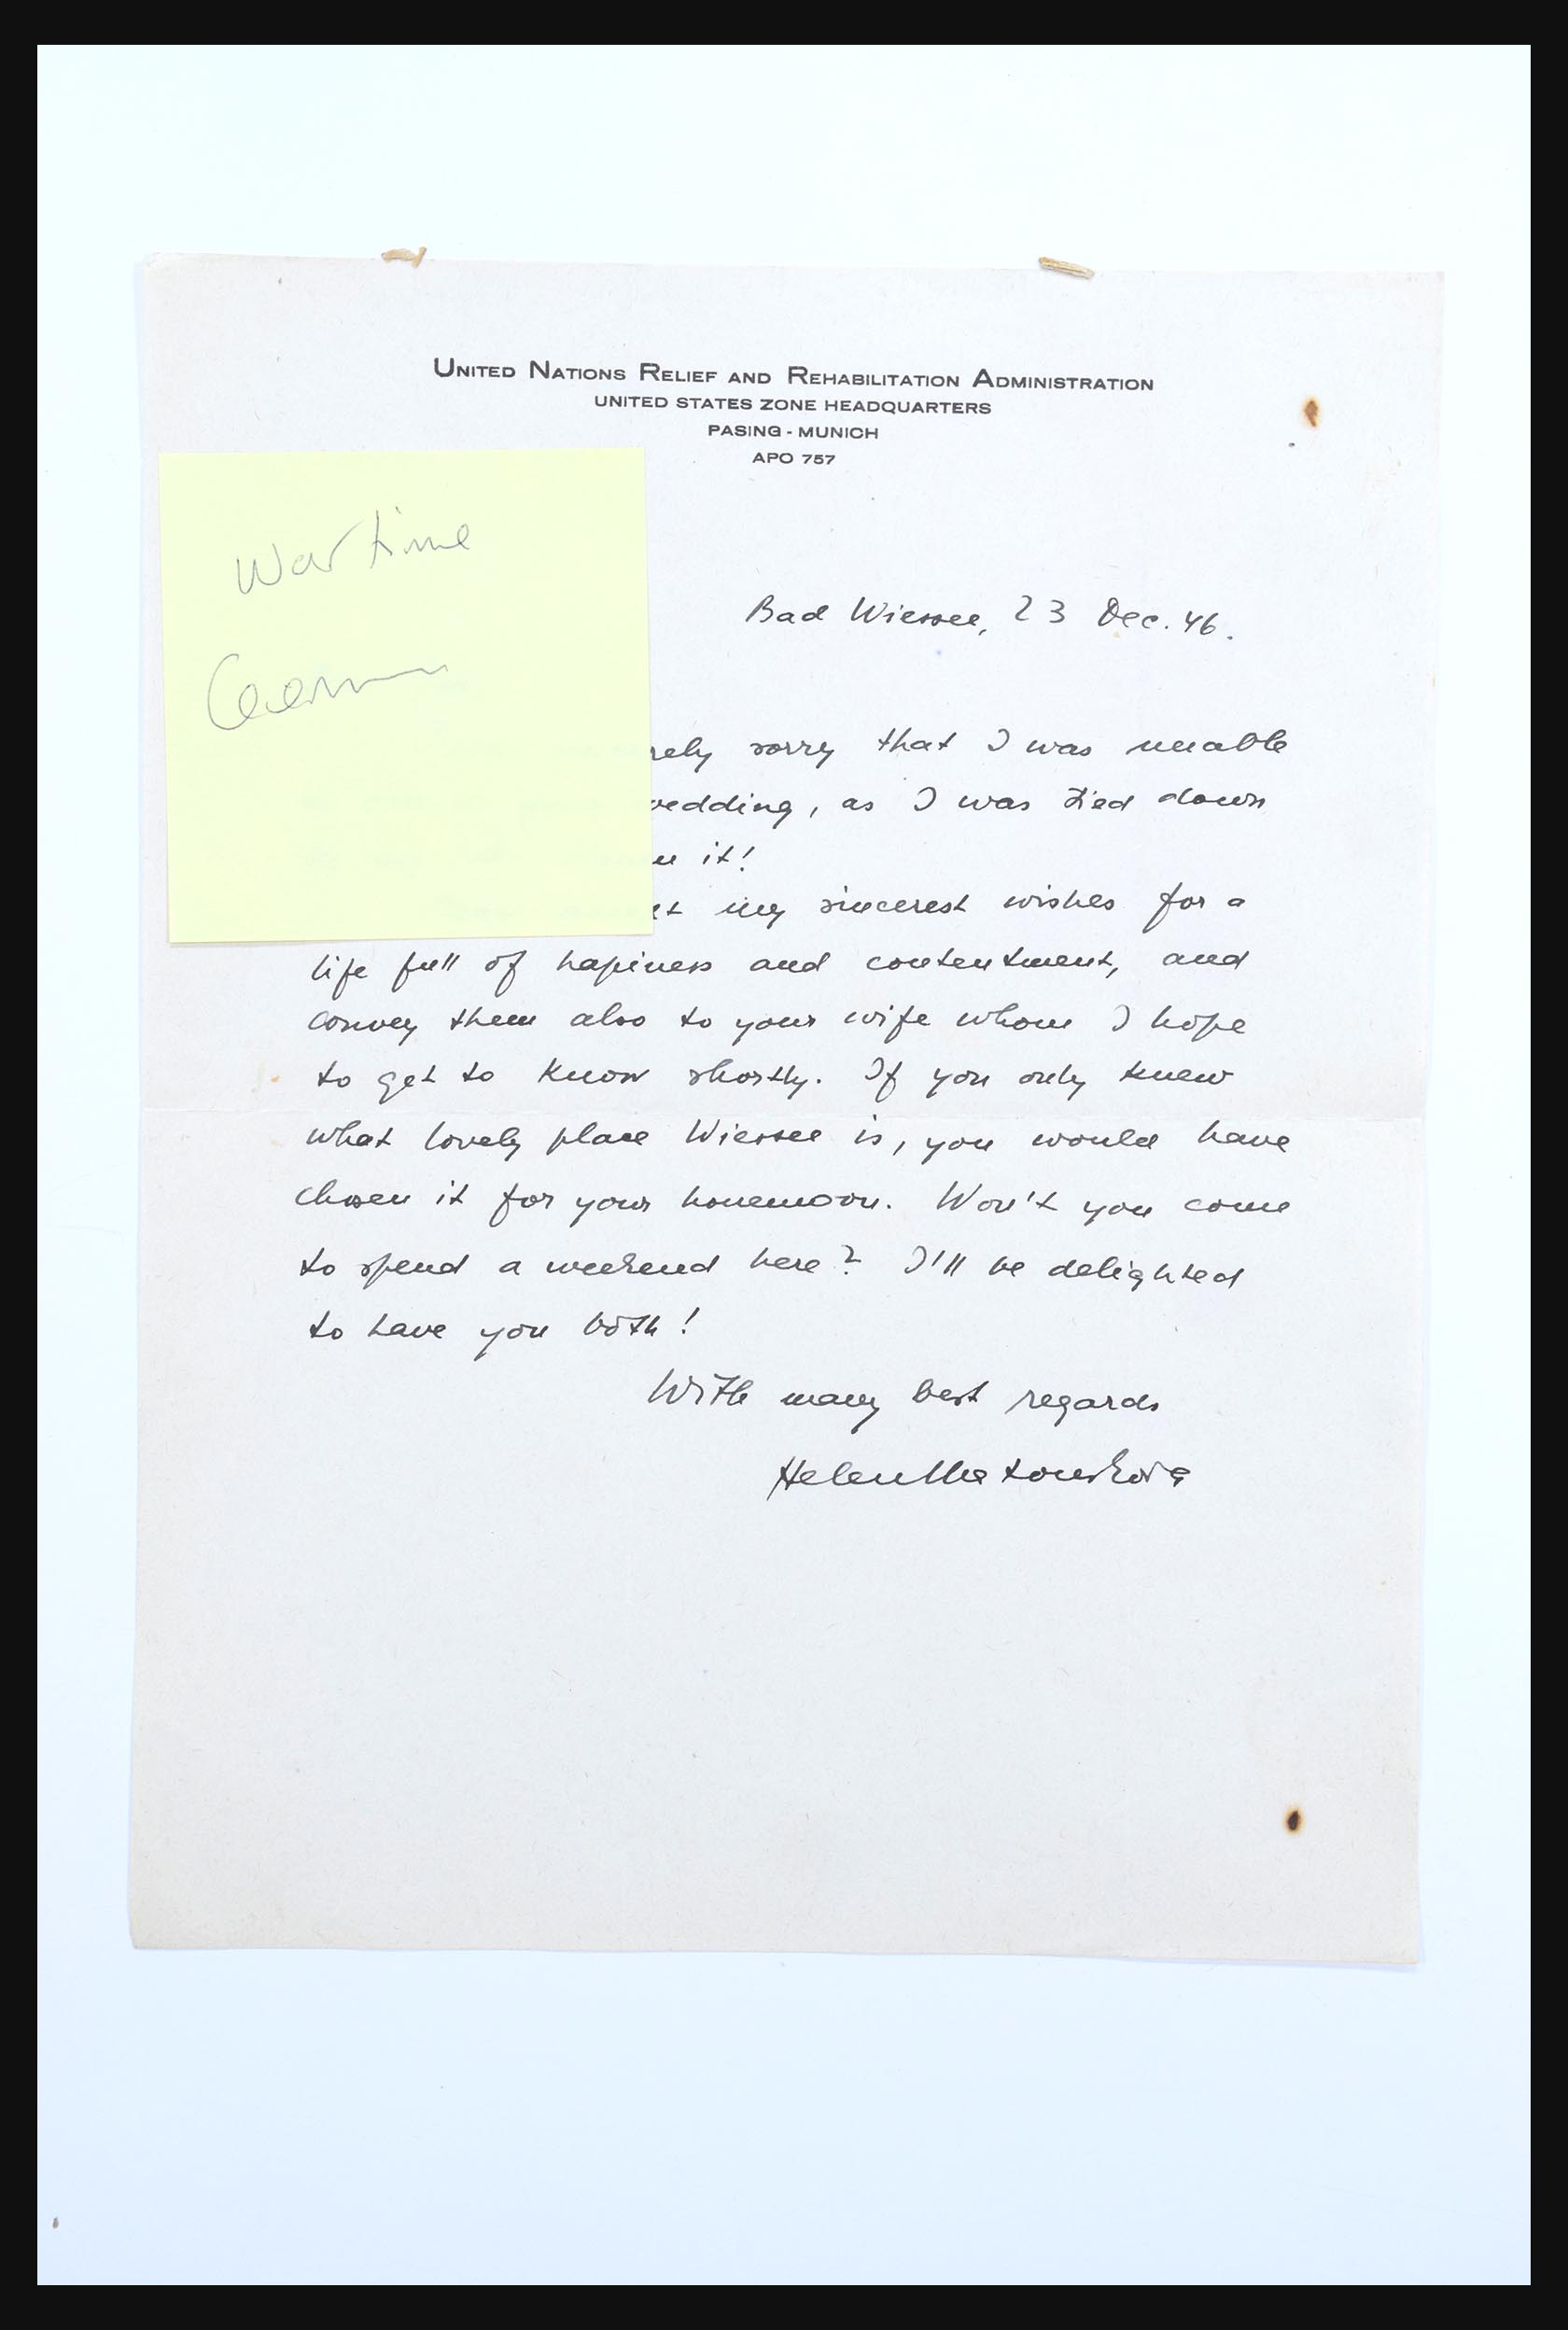 United Nations Relief and Rehabilitation Administration
UNITED STATES ZONE HEADQUARTERS
PASING - MUNICH
APO 757
War time
Bad Wiessee, 23 Dec. 46.
rely sorry that I was unable
wedding, as I was tied down
it!
my sincerest wishes for a
life full of hapiness and contentment, and
convey them also to your wife whom I hope
to get to know shortly. If you only knew
what lovely place Wiessee is, you would have
chosen it for your honemoon. Won't you come
to spend a weekend here? I'll be delighted
to have you both!
With many best regards
Helen